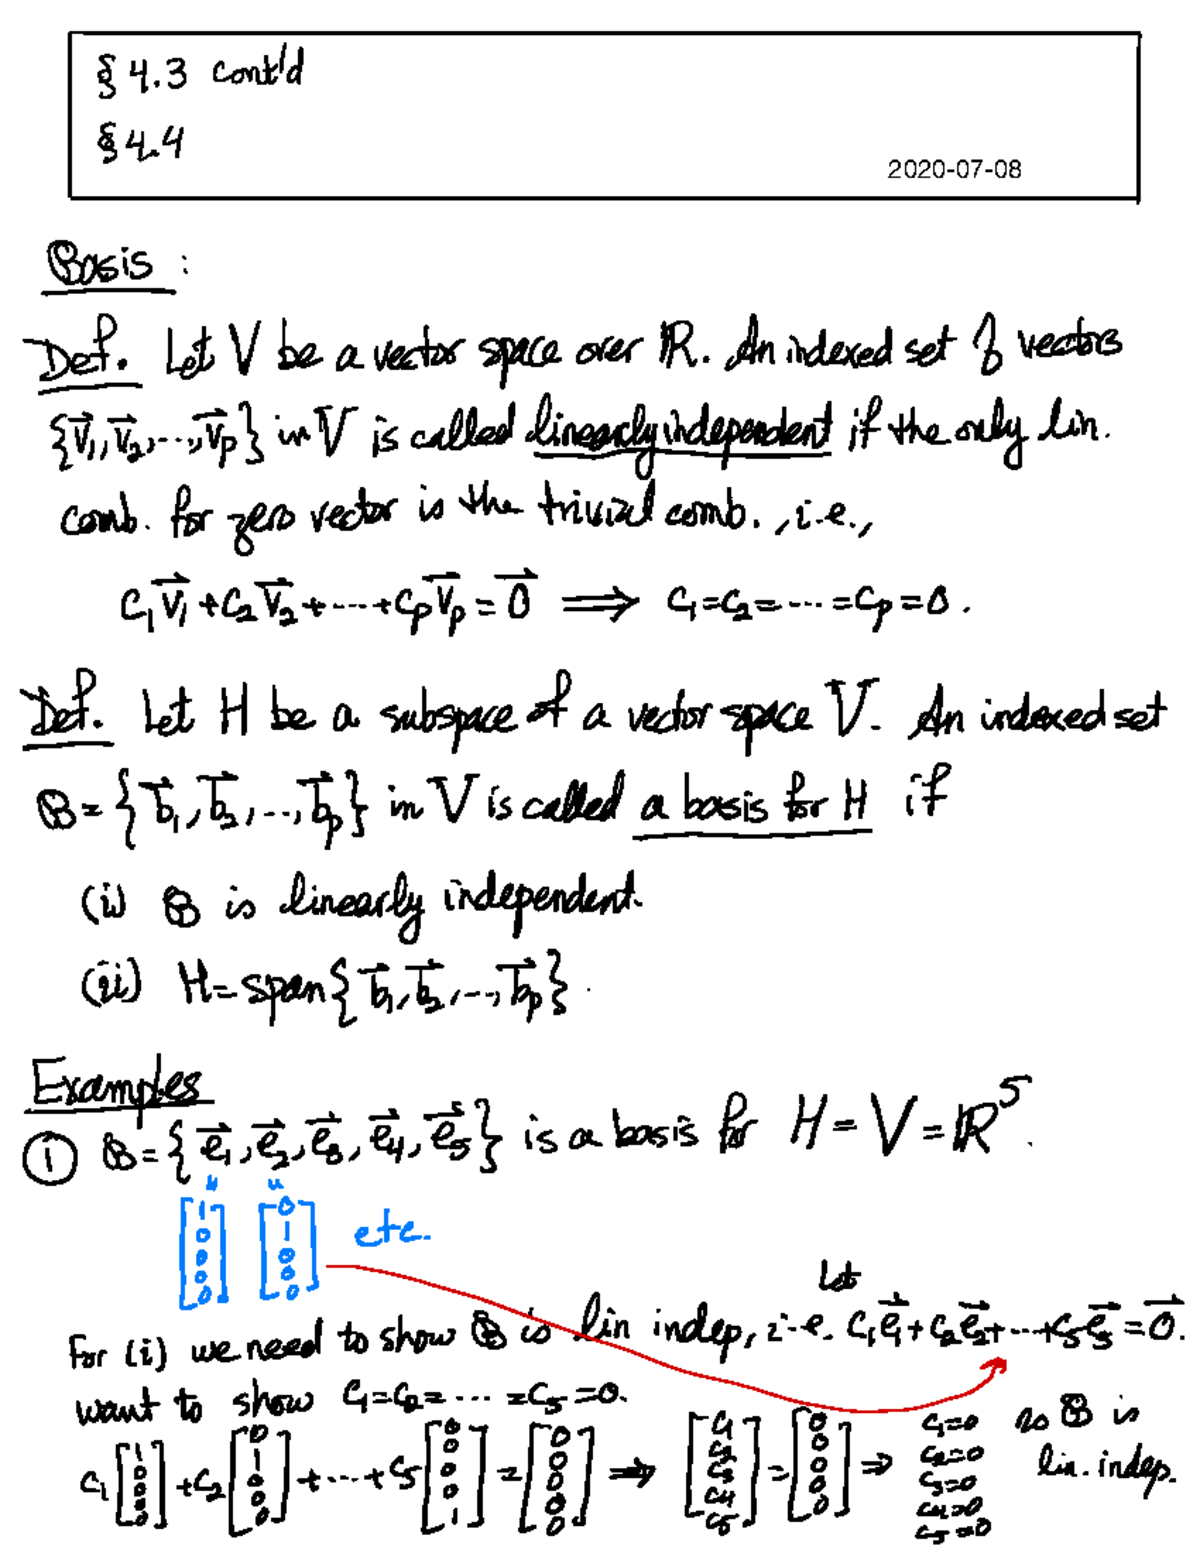 § 4.3 cont'd
§ 4.4
2020-07-08
Basis :
Def. Let V be a vector space over ℝ. An indexed set of vectors
{v⃗₁, v⃗₂, ..., v⃗ₚ} in V is called linearly independent if the only lin.
comb. for zero vector is the trivial comb., i.e.,
c₁v⃗₁ + c₂v⃗₂ + ... + cₚv⃗ₚ = 0⃗ ⟹ c₁=c₂= ... =cₚ=0.
Def. Let H be a subspace of a vector space V. An indexed set
B = {b⃗₁, b⃗₂, ..., b⃗ₚ} in V is called a basis for H if
(i) B is linearly independent.
(ii) H = span{b⃗₁, b⃗₂, ..., b⃗ₚ}.
Examples
① B = {e⃗₁, e⃗₂, e⃗₃, e⃗₄, e⃗₅} is a basis for H = V = ℝ⁵.
[1 0 0 0 0] [0 1 0 0 0] etc.
Let
For (i) we need to show B is lin indep, i.e. c₁e⃗₁ + c₂e⃗₂ + ... + c₅e⃗₅ = 0⃗.
want to show c₁=c₂= ... =c₅=0.
c₁[1 0 0 0 0] + c₂[0 1 0 0 0] + ... + c₅[0 0 0 0 1] = [0 0 0 0 0] ⟹ [c₁ c₂ c₃ c₄ c₅] = [0 0 0 0 0] ⟹ c₁=0 c₂=0 c₃=0 c₄=0 c₅=0 so B is
lin. indep.